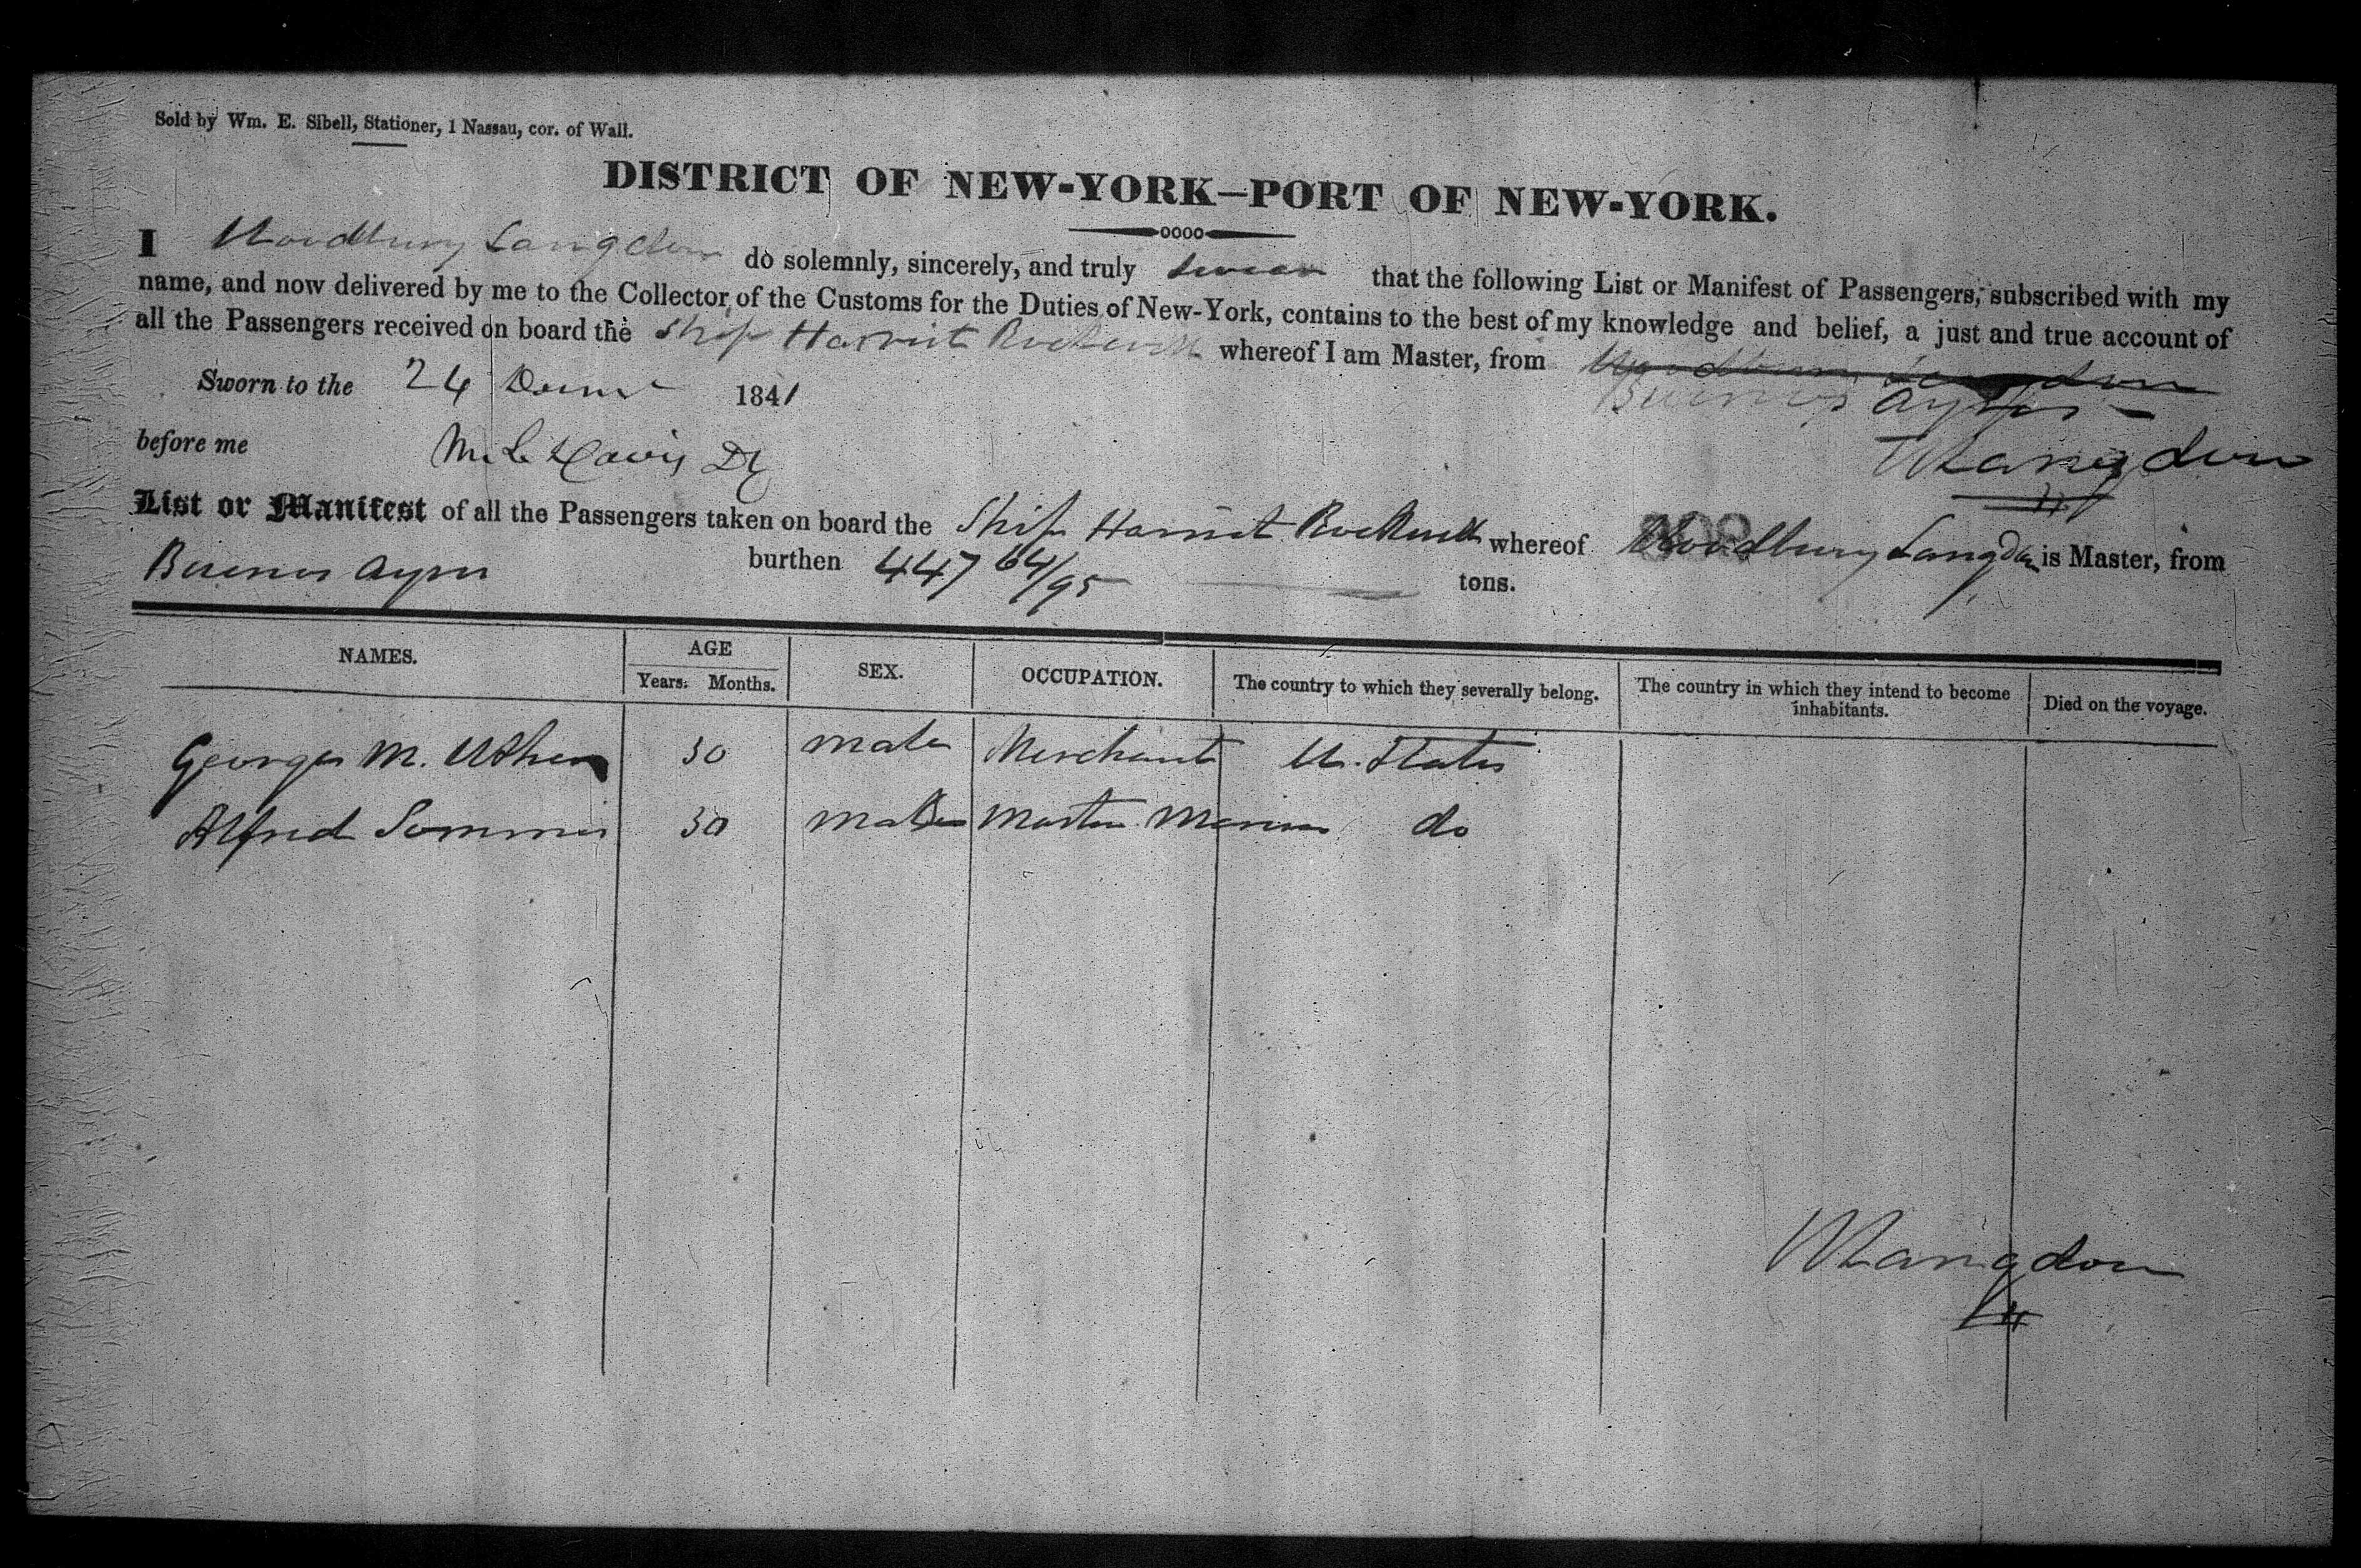 Sold by Wm. E. Sibell, Stationer, 1 Nassau, cor. of Wall.
DISTRICT OF NEW-YORK—PORT OF NEW-YORK.
I Woodbury Langdon do solemnly, sincerely, and truly swear that the following List or Manifest of Passengers, subscribed with my
name, and now delivered by me to the Collector of the Customs for the Duties of New-York, contains to the best of my knowledge and belief, a just and true account of
all the Passengers received on board the Ship Harriet Rockwell whereof I am Master, from Woodbury Langdon
Buenos Ayres
Sworn to the 24 1841
before me M. L. Davis
WLangdon
List or Manifest of all the Passengers taken on board the Ship Harriet Rockwell whereof Woodbury Langdon is Master, from
Buenos Ayres burthen 447 64/95 tons.
NAMES. AGE SEX. OCCUPATION. The country to which they severally belong. The country in which they intend to become inhabitants. Died on the voyage.
Years. Months.
George M. 30 male Merchant U. States
Alfred 30 male Master Mariner do
WLangdon